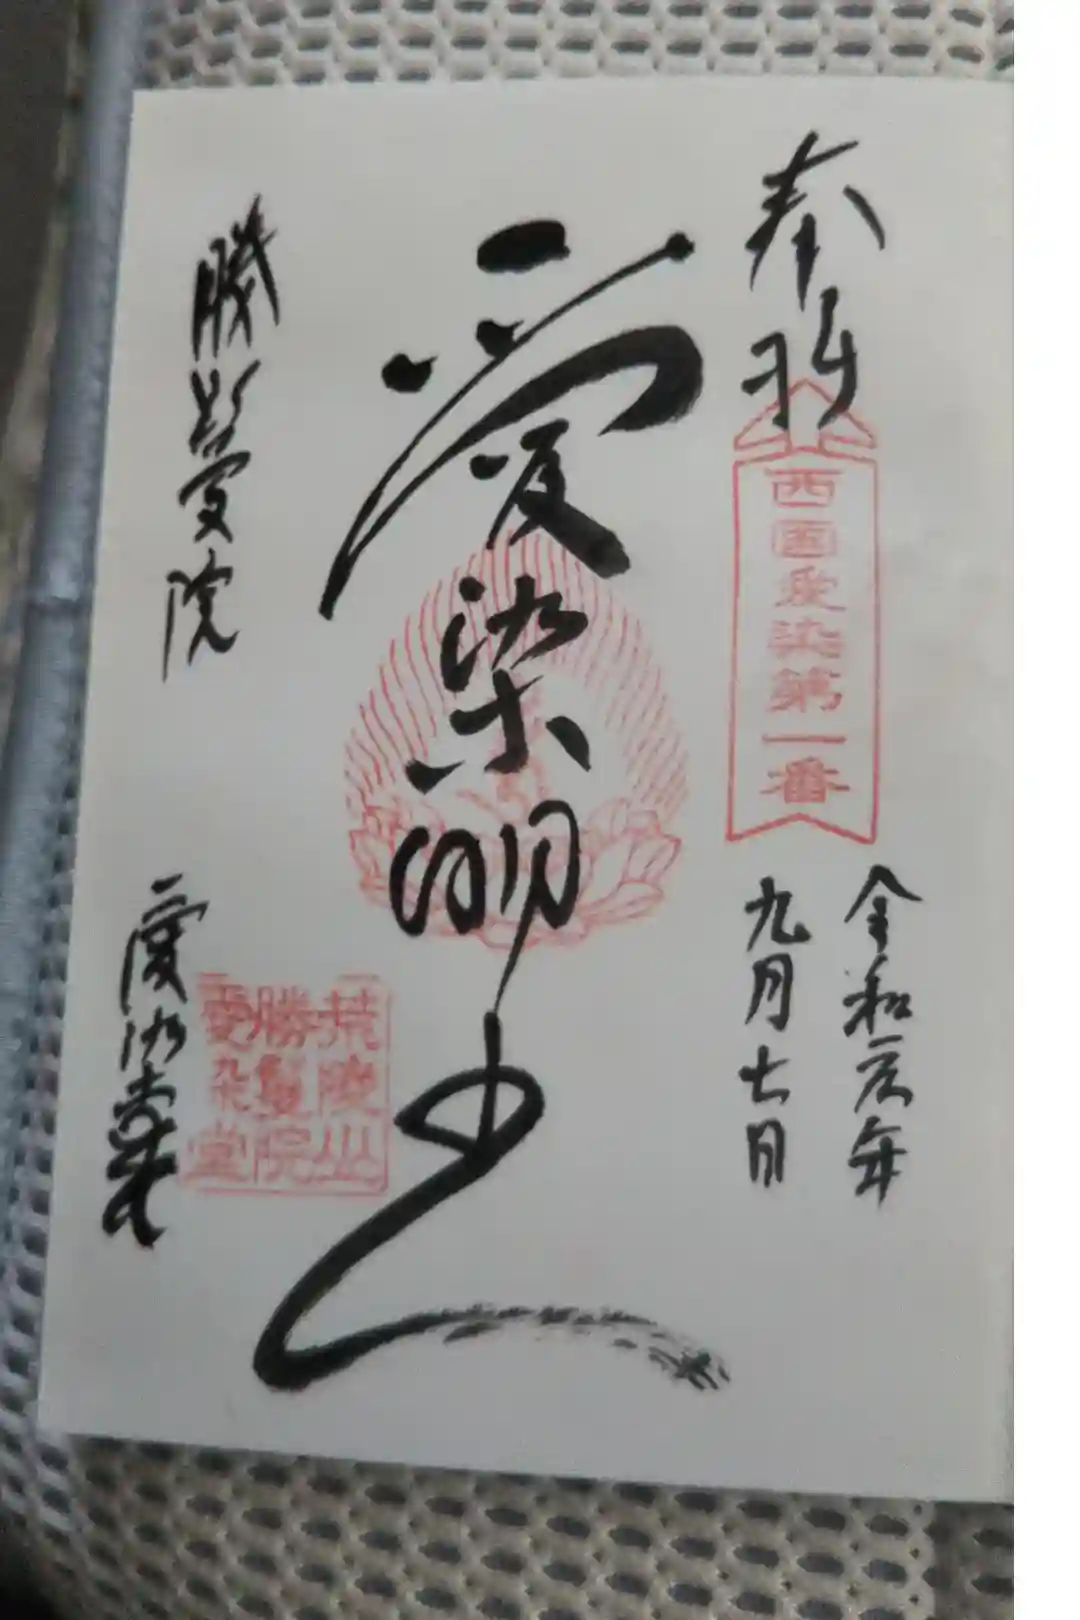 奉拝
西国愛染第一番
令和元年
九月七日
愛染明王
荒陵山
勝鬘院
愛染堂
勝鬘院
愛染堂